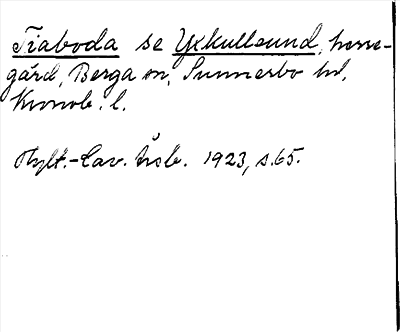 Tiaboda se Yxkullsund, herre-
gård, Berga sn, Sunnerbo hd,
Kronob. l.
Hylt.-Cav. årsb. 1923, s. 65.